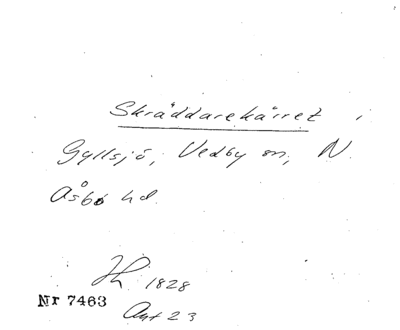 Skräddarekärret i
Gyllsjö, Vedby sn, N.
Åsbo hd.
1828
Nr 7463
Avt 23